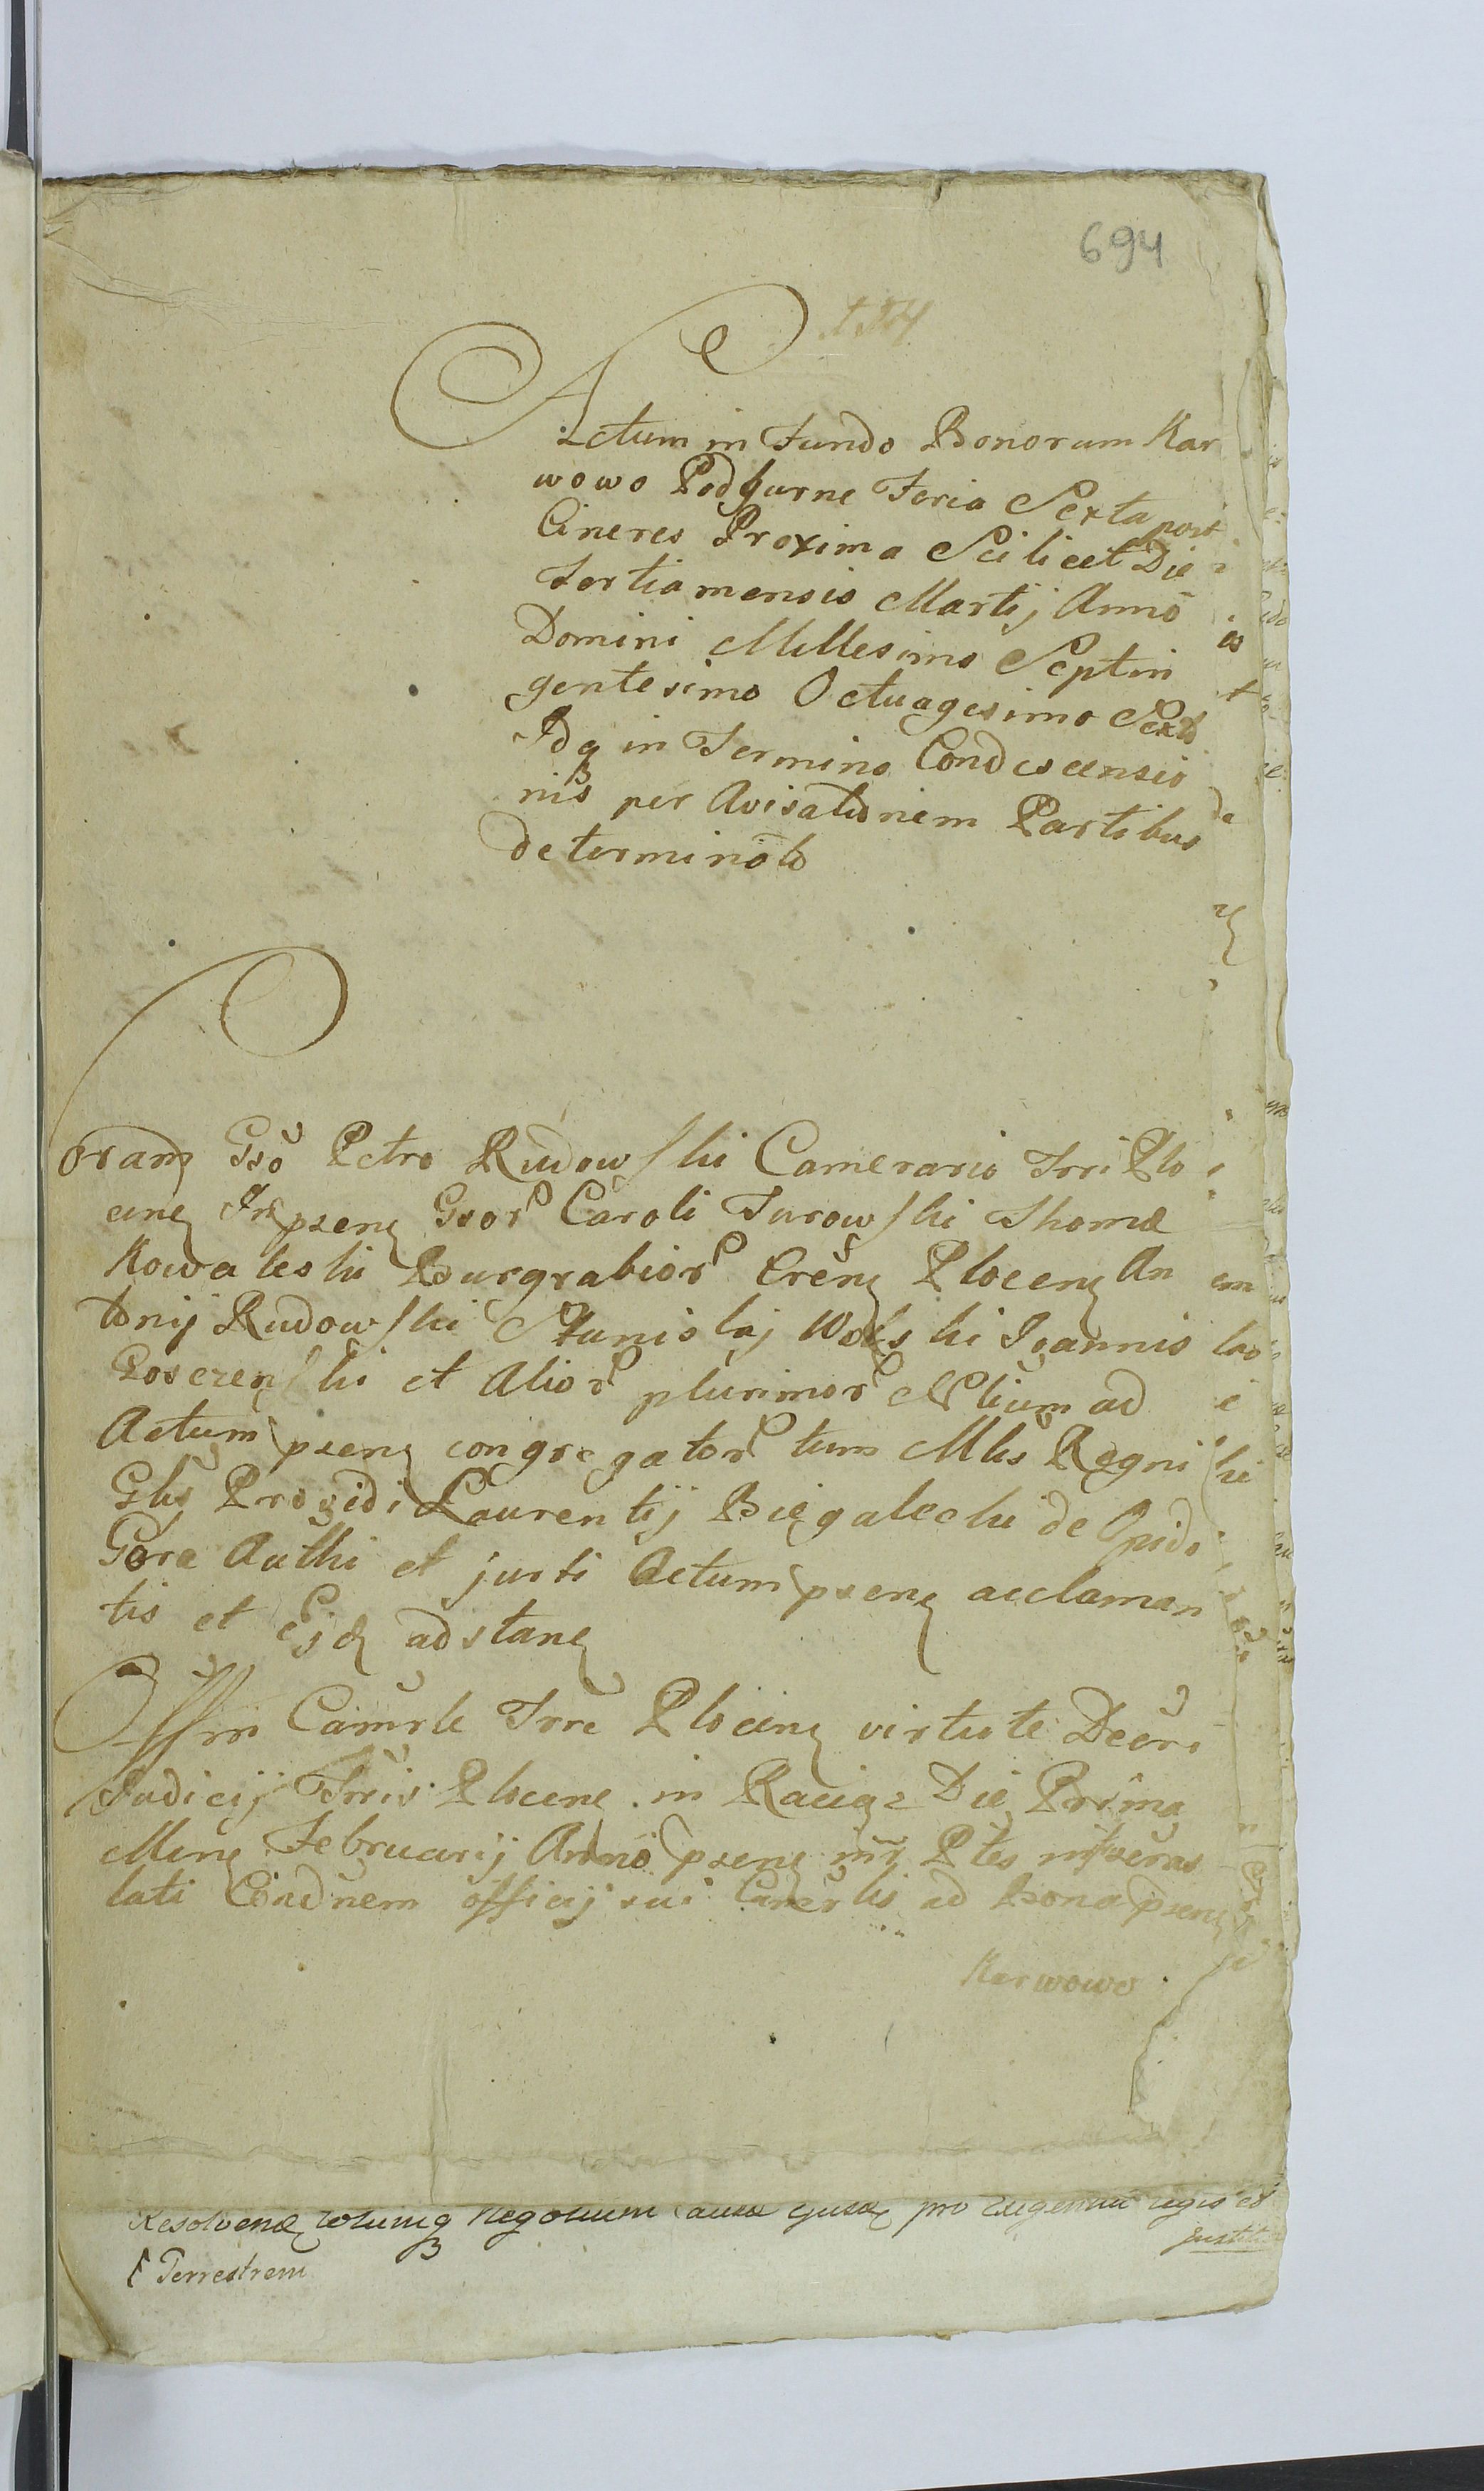 694
Actum in Fundo Bonorum Kar
wowo Podgurne Feria Sexta post
Cineres Proxima Scilicet Die
Tertia mensis Martij Anno
Domini Millesimo Septin
gentesimo Octuagesimo Sexto
Idq in Termino Condescensio
nis per Avisationem Partibus
determinato
Coram Gso Petro Rudowski Camerario Trri Plo
cen In psen Gsor Caroli Turowski Thomæ
Kowaleski Burgrabior Cren Plocen An
tonij Rudowski Stanislaj Wolski Joannis
et Alior plurimor Nblium ad
Actum psen congregator tum Mlis Regni
Glis Providi Laurentij Biegalecki de Opido
Gora Authi et jurti Actum psen acclaman
tis et Ejd adstan
Offm Camrle Trre Plocen virtute Decri
Judicij Trris Plocen in Raciąz Die Prima
Men Februarij Anno psen inr Ptes
lati Condnem officij sui Camerlis ad Bona psen
Karwowo
Resolven totumq Negotium causæ pro exigentia legis et
Justiti
Terrestrem